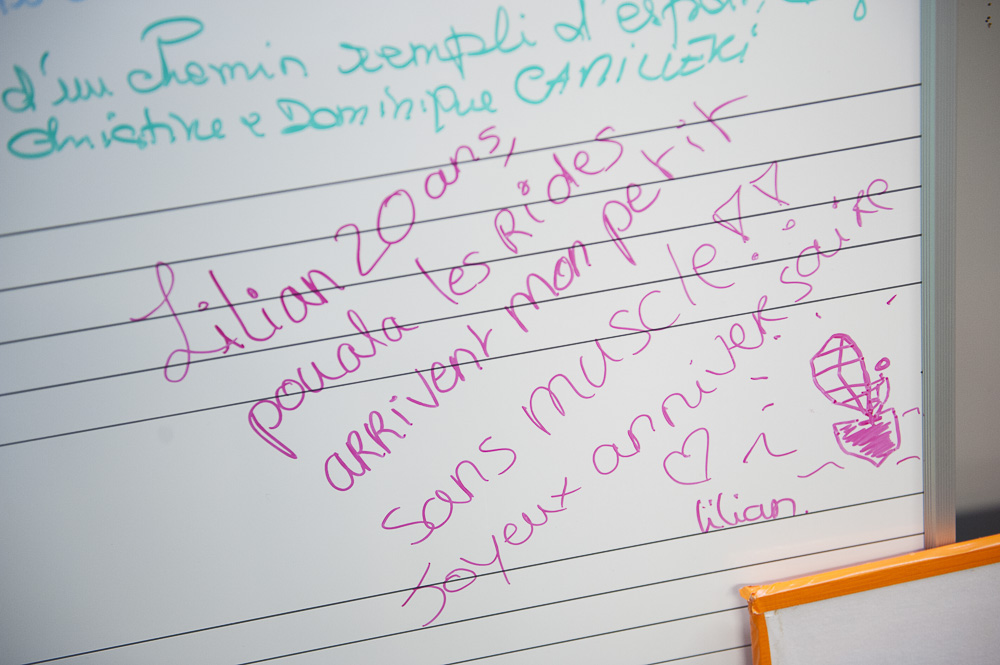 d'un Chemin rempli d'espoir
Christine & Dominique CANIUEKI
Lilian 20 ans,
pouala les Rides
aRRivent mon petit
sans muscle !!
Joyeux anniversaire
lilian.